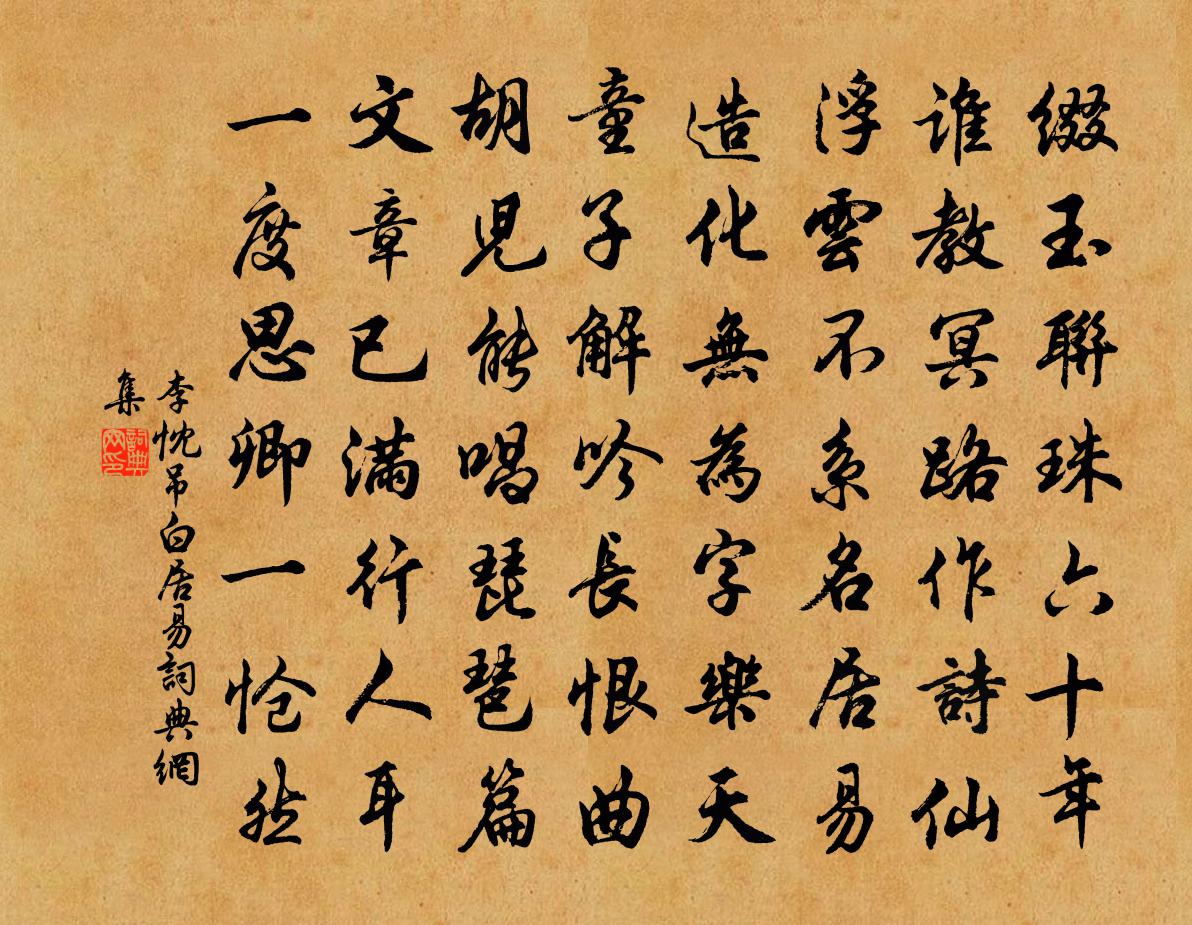 缀玉聯珠六十年
谁教冥路作詩仙
浮雲不系名居易
造化無為字樂天
童子解吟長恨曲
胡児能唱琵琶篇
文章已滿行人耳
一度思卿一怆然
李忱吊白居易詞典網
集
詞典
网印